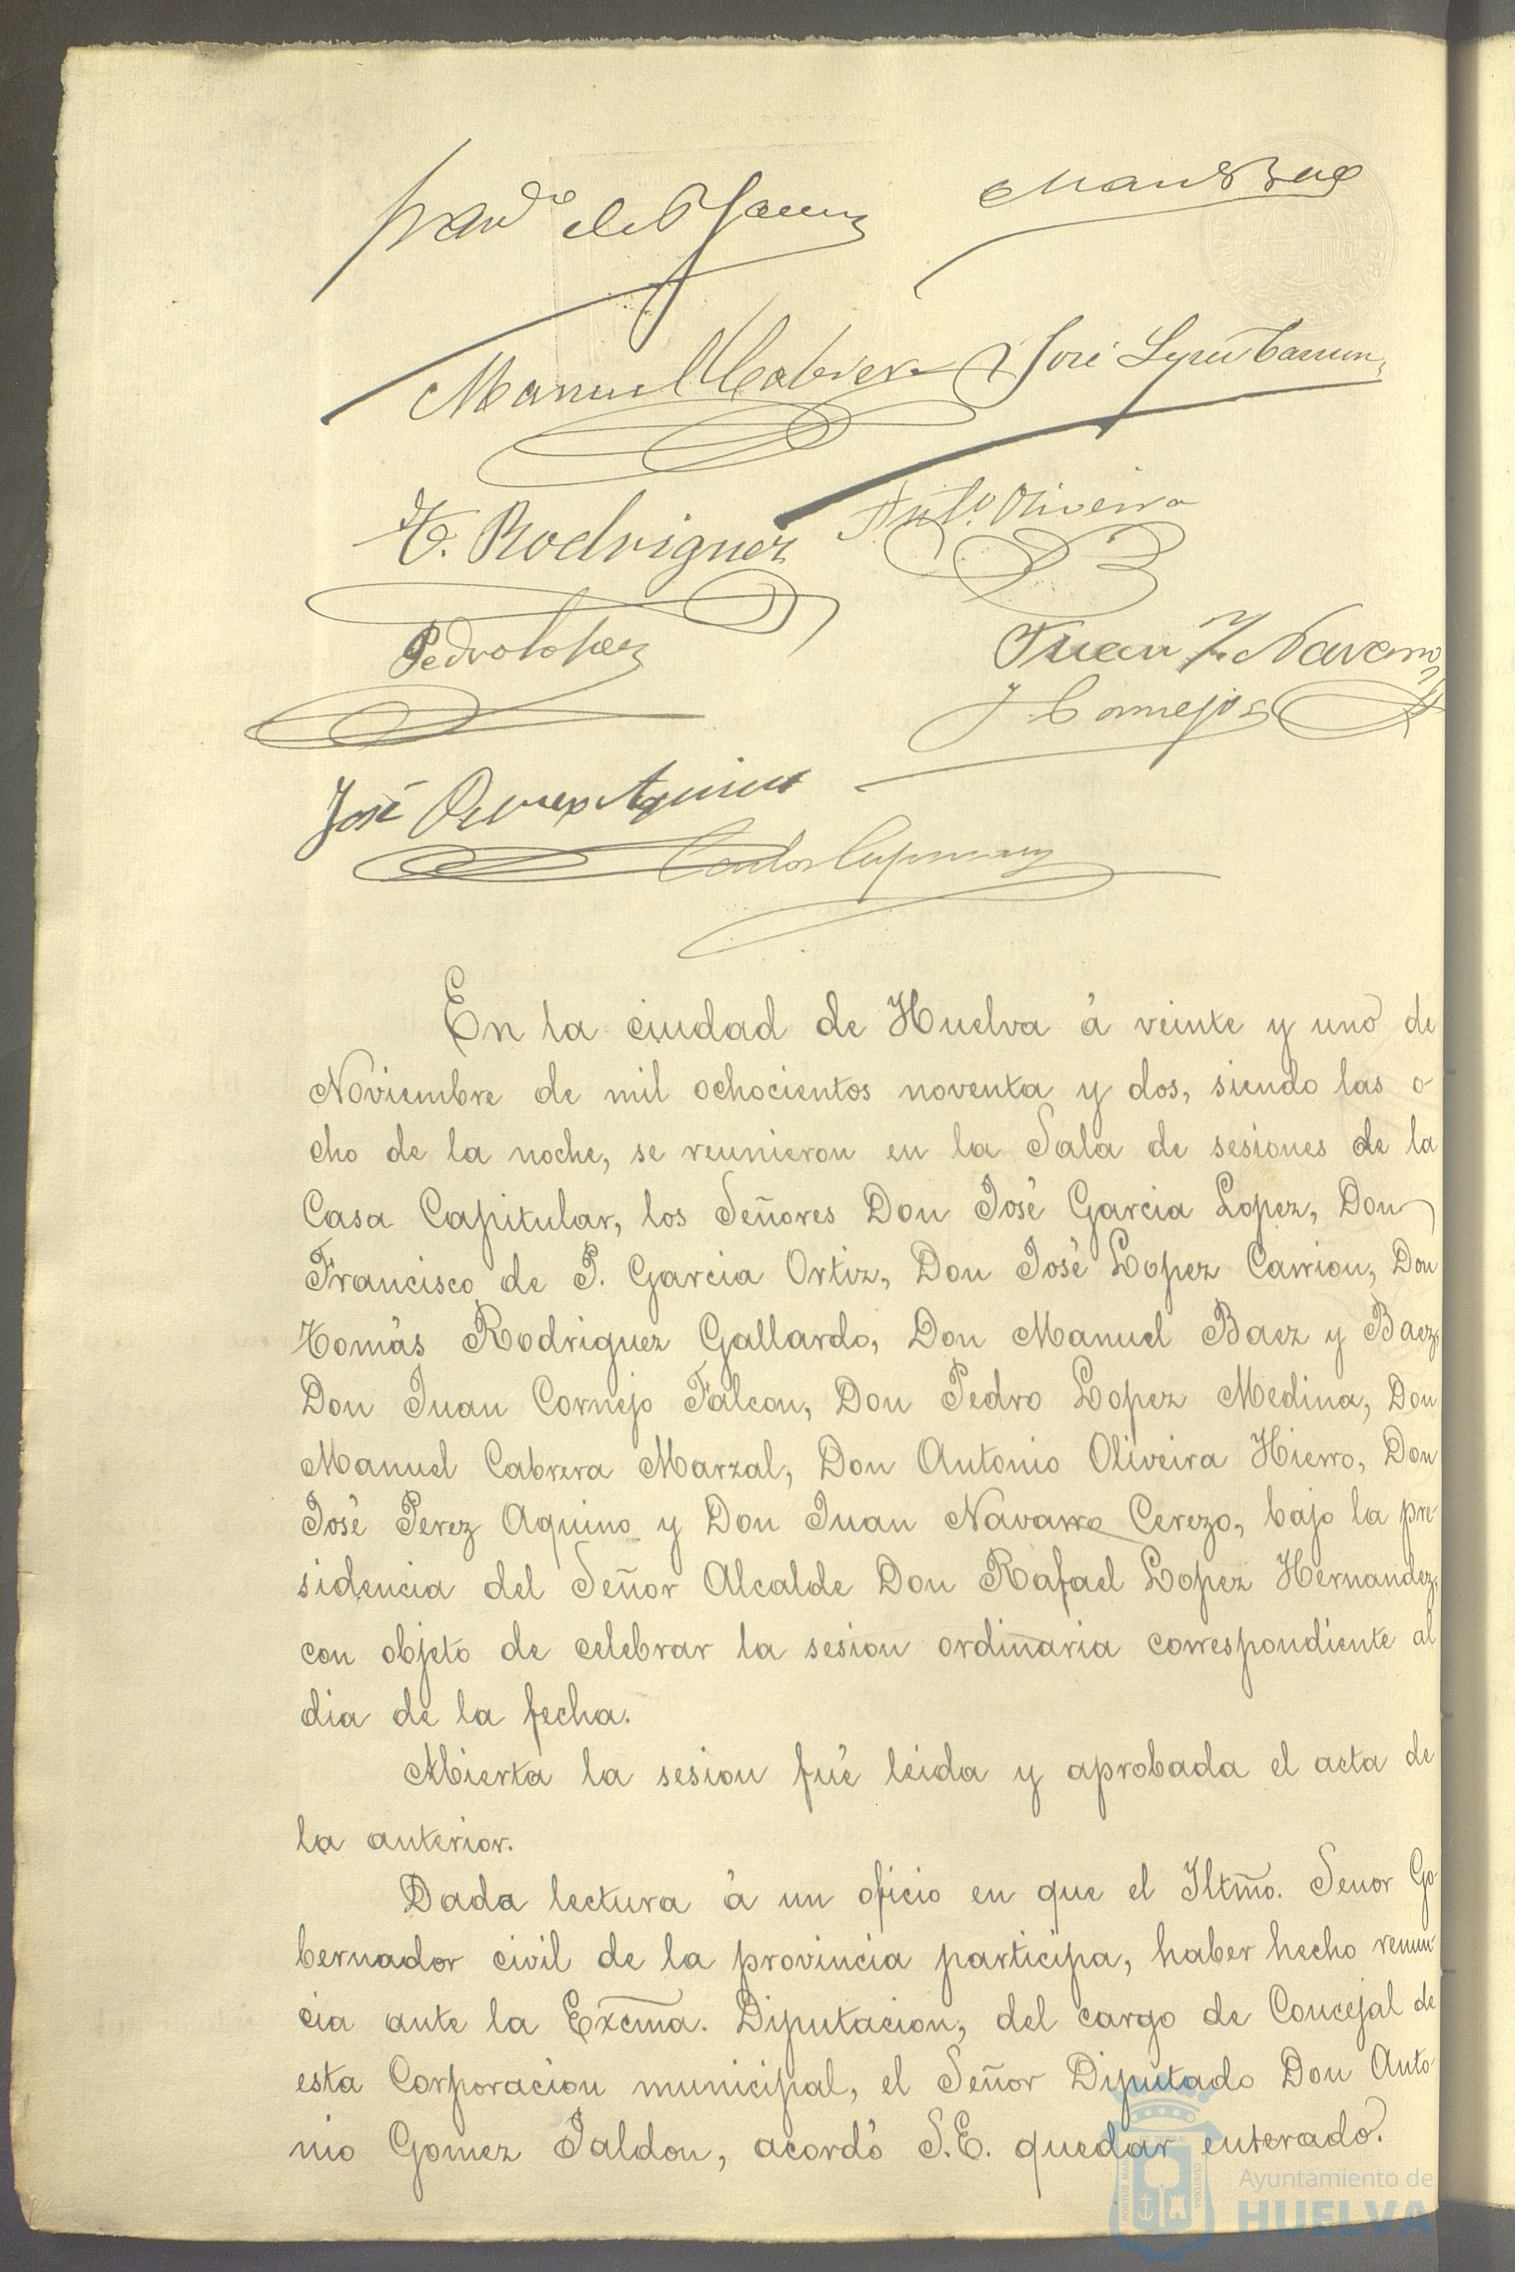 Manuel Baez
Manuel Cabrera José Lopez Carrion
T. Rodriguez Antº. Oliveira
Pedro Lopez Juan Navarro
J Cornejo
José Perez Aquino
En la ciudad de Huelva á veinte y uno de
Noviembre de mil ochocientos noventa y dos, siendo las o-
cho de la noche, se reunieron en la Sala de sesiones de la
Casa Capitular, los Señores Don José Garcia Lopez, Don
Francisco de P. Garcia Ortiz, Don José Lopez Carrion, Don
Tomás Rodriguez Gallardo, Don Manuel Baez y Baez,
Don Juan Cornejo Falcon, Don Pedro Lopez Medina, Don
Manuel Cabrera Marzal, Don Antonio Oliveira Hierro, Don
José Perez Aquino y Don Juan Navarro Cerezo, bajo la pre-
sidencia del Señor Alcalde Don Rafael Lopez Hernandez,
con objeto de celebrar la sesion ordinaria correspondiente al
dia de la fecha.
Abierta la sesion fué leida y aprobada el acta de
la anterior.
Dada lectura á un oficio en que el Iltmo. Señor Go-
bernador civil de la provincia participa, haber hecho renun-
cia ante la Excma. Diputacion, del cargo de Concejal de
esta Corporacion municipal, el Señor Diputado Don Anto-
nio Gomez Jaldon, acordó S.E. quedar enterado.
Ayuntamiento de
HUELVA